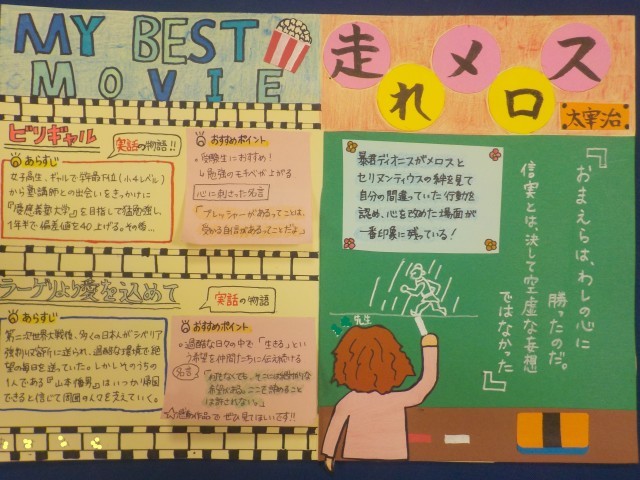 MY BEST
MOVIE
ビリギャル
実話の物語!!
あらすじ
女子高生、ギャルで学年下位(小4レベル)
から塾講師との出会いをきっかけに
『慶應義塾大学』を目指して猛勉強し、
1年半で偏差値を40上げる。その後…
おすすめポイント
・受験生におすすめ!
↳勉強のモチベが上がる
心に刺さった名言
「プレッシャーがあるってことは、
受かる自信があるってことだよ。」
ラーゲリより愛を込めて
実話の物語
あらすじ
第二次世界大戦後、多くの日本人がシベリア
強制収容所に送られ、過酷な環境で絶
望の毎日を送っていた。しかしそのうちの
1人である『山本幡男』はいつか帰国
できると信じて周囲の人々を支えていく。
おすすめポイント
・過酷な日々の中で「生きる」とい
う希望を仲間たちに伝え続ける
名言
感動作品で ぜひ見てほしいです!!
走れメロス
太宰治
暴君ディオニスがメロスと
セリヌンティウスの絆を見て
自分の間違っていた行動を
認め、心を改めた場面が
一番印象に残っている!
『おまえらは、わしの心に
勝ったのだ。
信実とは、決して空虚な妄想
ではなかった』
先生